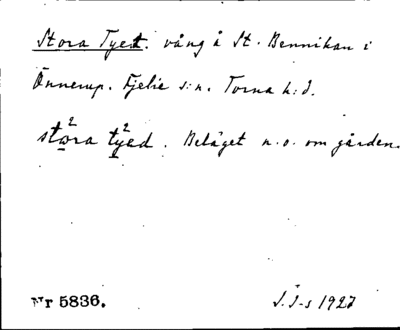 Stora Tyet. vång å St. Bennikan i
Önnerup. Fjelie s:n. Torna h:d.
stora tyed. Beläget n.o. om gården.
Nr 5836. J.I-s 1927